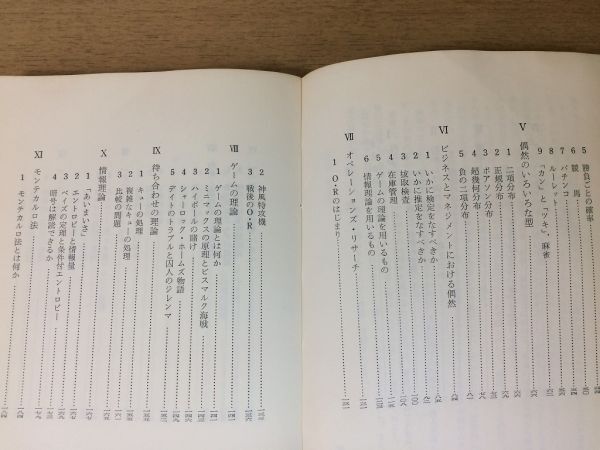 5 勝負ごとの確率
6 競馬
7 パチンコ
8 ルーレット
9 「カン」と「ツキ」、麻雀
Ⅴ 偶然のいろいろな型
1 二項分布
2 正規分布
3 ポアソン分布
4 超幾何分布
5 負の二項分布
Ⅵ ビジネスとマネジメントにおける偶然
1 いかに検定をなすべきか
2 いかに推定をなすべきか
3 抜取検査
4 在庫管理
5 ゲームの理論を用いるもの
6 情報理論を用いるもの
Ⅶ オペレーションズ・リサーチ
1 O・Rのはじまり
2 神風特攻機
3 戦後のO・R
Ⅷ ゲームの理論
1 ゲームの理論とは何か
2 ミニマックスの原理とビスマルク海戦
3 ハイボールの賭け
4 シャーロック・ホームズ物語
5 デイトのトラブルと囚人のジレンマ
Ⅸ 待ち合わせの理論
1 キューの処理
2 複雑なキューの処理
3 比較の問題
Ⅹ 情報理論
1 「あいまいさ」
2 エントロピーと情報量
3 ベイズの定理と条件付エントロピー
4 暗号は解読できるか
Ⅺ モンテカルロ法
1 モンテカルロ法とは何か